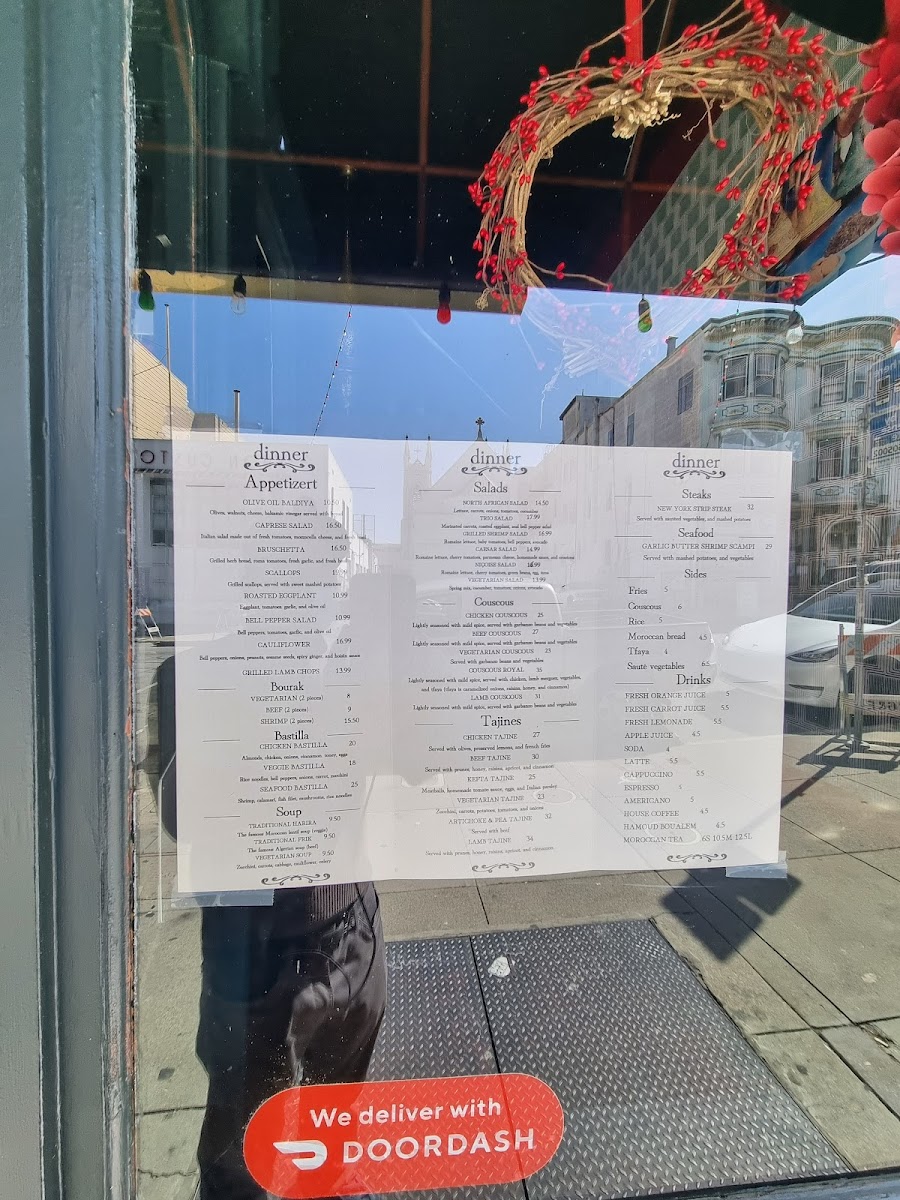 dinner
Appetizert
OLIVE OIL BALDIYA 10.50
Olives, walnuts, cheese, balsamic vinegar served with
CAPRESE SALAD 16.50
Italian salad made out of fresh tomatoes, mozzarella cheese, and fresh
BRUSCHETTA 16.50
Grilled herb bread, roma tomatoes, fresh garlic, and fresh
SCALLOPS
Grilled scallops, served with sweet mashed potatoes
ROASTED EGGPLANT 10.99
Eggplant, tomatoes, garlic, and olive oil
BELL PEPPER SALAD 10.99
Bell peppers, tomatoes, garlic, and olive oil
CAULIFLOWER 16.99
Bell peppers, onions, peanuts, sesame seeds, spicy ginger, and hoisin sauce
GRILLED LAMB CHOPS 13.99
Bourak
VEGETARIAN (2 pieces) 8
BEEF (2 pieces) 9
SHRIMP (2 pieces) 15.50
Bastilla
CHICKEN BASTILLA 20
Almonds, chicken, onions, cinnamon, sugar, eggs
VEGGIE BASTILLA 18
Rice noodles, bell peppers, onions, carrot, zucchini
SEAFOOD BASTILLA 25
Shrimp, calamari, fish filet, mushrooms, rice noodles
Soup
TRADITIONAL HARIRA 9.50
The famous Moroccan lentil soup (veggie)
TRADITIONAL FRIK 9.50
The famous Algerian soup (beef)
VEGETARIAN SOUP 9.50
Zucchini, carrots, cabbage, cauliflower, celery
dinner
Salads
NORTH AFRICAN SALAD 14.50
Lettuce, carrots, onions, tomatoes, cucumber
TRIO SALAD 17.99
Marinated carrots, roasted eggplant, and bell pepper salad
GRILLED SHRIMP SALAD 16.99
Romaine lettuce, baby tomatoes, bell peppers, avocado
CAESAR SALAD 14.99
Romaine lettuce, cherry tomatoes, parmesan cheese, homemade sauce, and croutons
NIÇOISE SALAD 16.99
Romaine lettuce, cherry tomatoes, green beans, egg, tuna
VEGETARIAN SALAD 13.99
Spring mix, cucumber, tomatoes, onions, avocado
Couscous
CHICKEN COUSCOUS 25
Lightly seasoned with mild spice, served with garbanzo beans and vegetables
BEEF COUSCOUS 27
Lightly seasoned with mild spice, served with garbanzo beans and vegetables
VEGETARIAN COUSCOUS 23
Served with garbanzo beans and vegetables
COUSCOUS ROYAL 35
Lightly seasoned with mild spice, served with chicken, lamb merguez, vegetables,
and tfaya (tfaya is caramelized onions, raisins, honey, and cinnamon)
LAMB COUSCOUS 31
Lightly seasoned with mild spice, served with garbanzo beans and vegetables
Tajines
CHICKEN TAJINE 27
Served with olives, preserved lemons, and french fries
BEEF TAJINE 30
Served with prunes, honey, raisins, apricot, and cinnamon
KEFTA TAJINE 25
Meatballs, homemade tomato sauce, eggs, and Italian parsley
VEGETARIAN TAJINE 23
Zucchini, carrots, potatoes, tomatoes, and onions
ARTICHOKE & PEA TAJINE 32
Served with beef
LAMB TAJINE 34
Served with prunes, honey, raisins, apricot, and cinnamon
dinner
Steaks
NEW YORK STRIP STEAK 32
Served with sauteed vegetables, and mashed potatoes
Seafood
GARLIC BUTTER SHRIMP SCAMPI 29
Served with mashed potatoes, and vegetables
Sides
Fries 5
Couscous 6
Rice 5
Moroccan bread 4.5
Tfaya 4
Sauté vegetables 6.5
Drinks
FRESH ORANGE JUICE 5
FRESH CARROT JUICE 5.5
FRESH LEMONADE 5.5
APPLE JUICE 4.5
SODA 4
LATTE 5.5
CAPPUCCINO 5.5
ESPRESSO
AMERICANO 5
HOUSE COFFEE 4.5
HAMOUD BOUALEM 4.5
MOROCCAN TEA 6S 10.5M 12.5L
We deliver with
DOORDASH